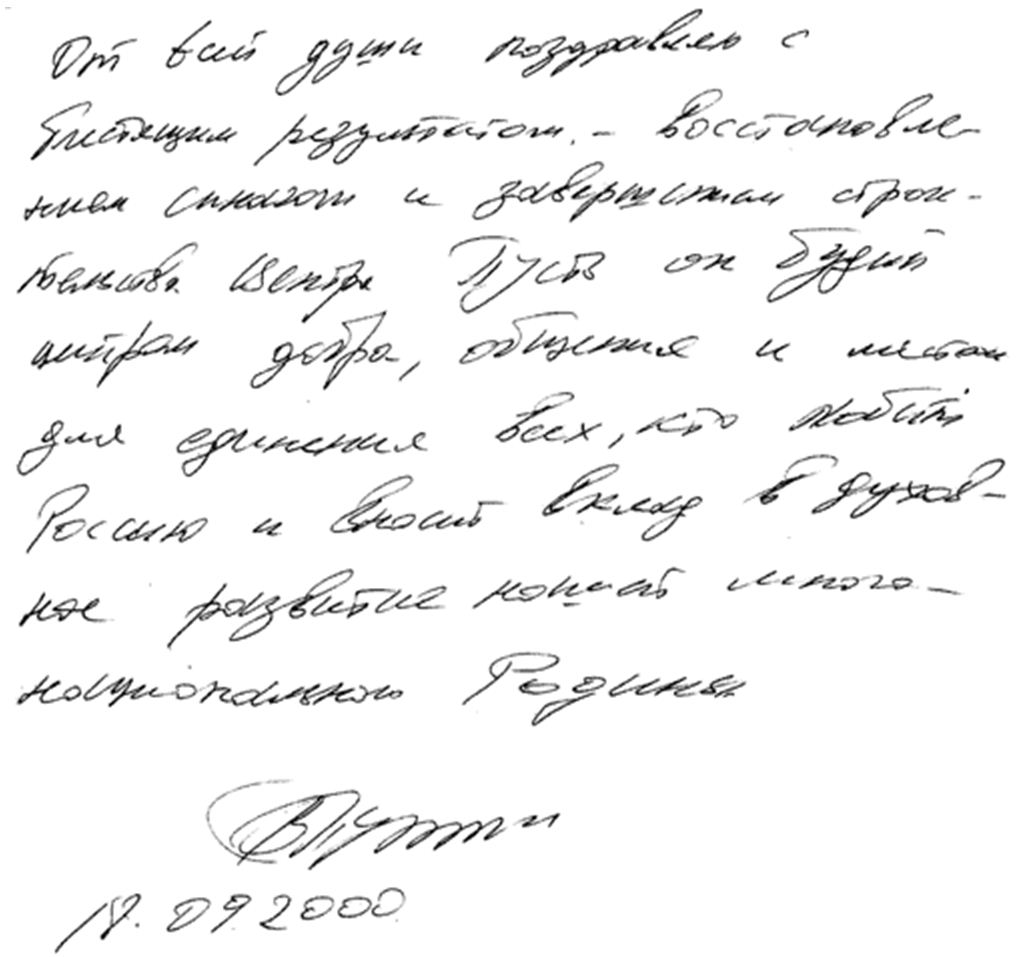 От всей души поздравляю с
блестящим результатом. – восстановле-
нием синагоги и завершением строи-
тельства Центра Пусть он будет
центром добра, общения и местом
для единения всех, кто любит
Россию и вносит вклад в духов-
ное развитие нашей много-
национальной Родины
В Путин
18.09.2000